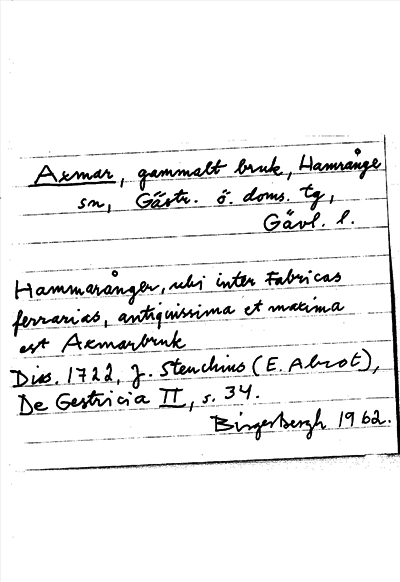 Axmar, gammalt bruk, Hamrånge
sn, Gästr. ö. doms. tg,
Gävl. l.
Hammarånger, ubi inter Fabricas
ferrarias, antiquissima et maxima
est Axmarbruk
Diss. 1722, J. Stenchius (E. Abrot),
De Gestricia II, s. 34.
Birger Bergh 1962.